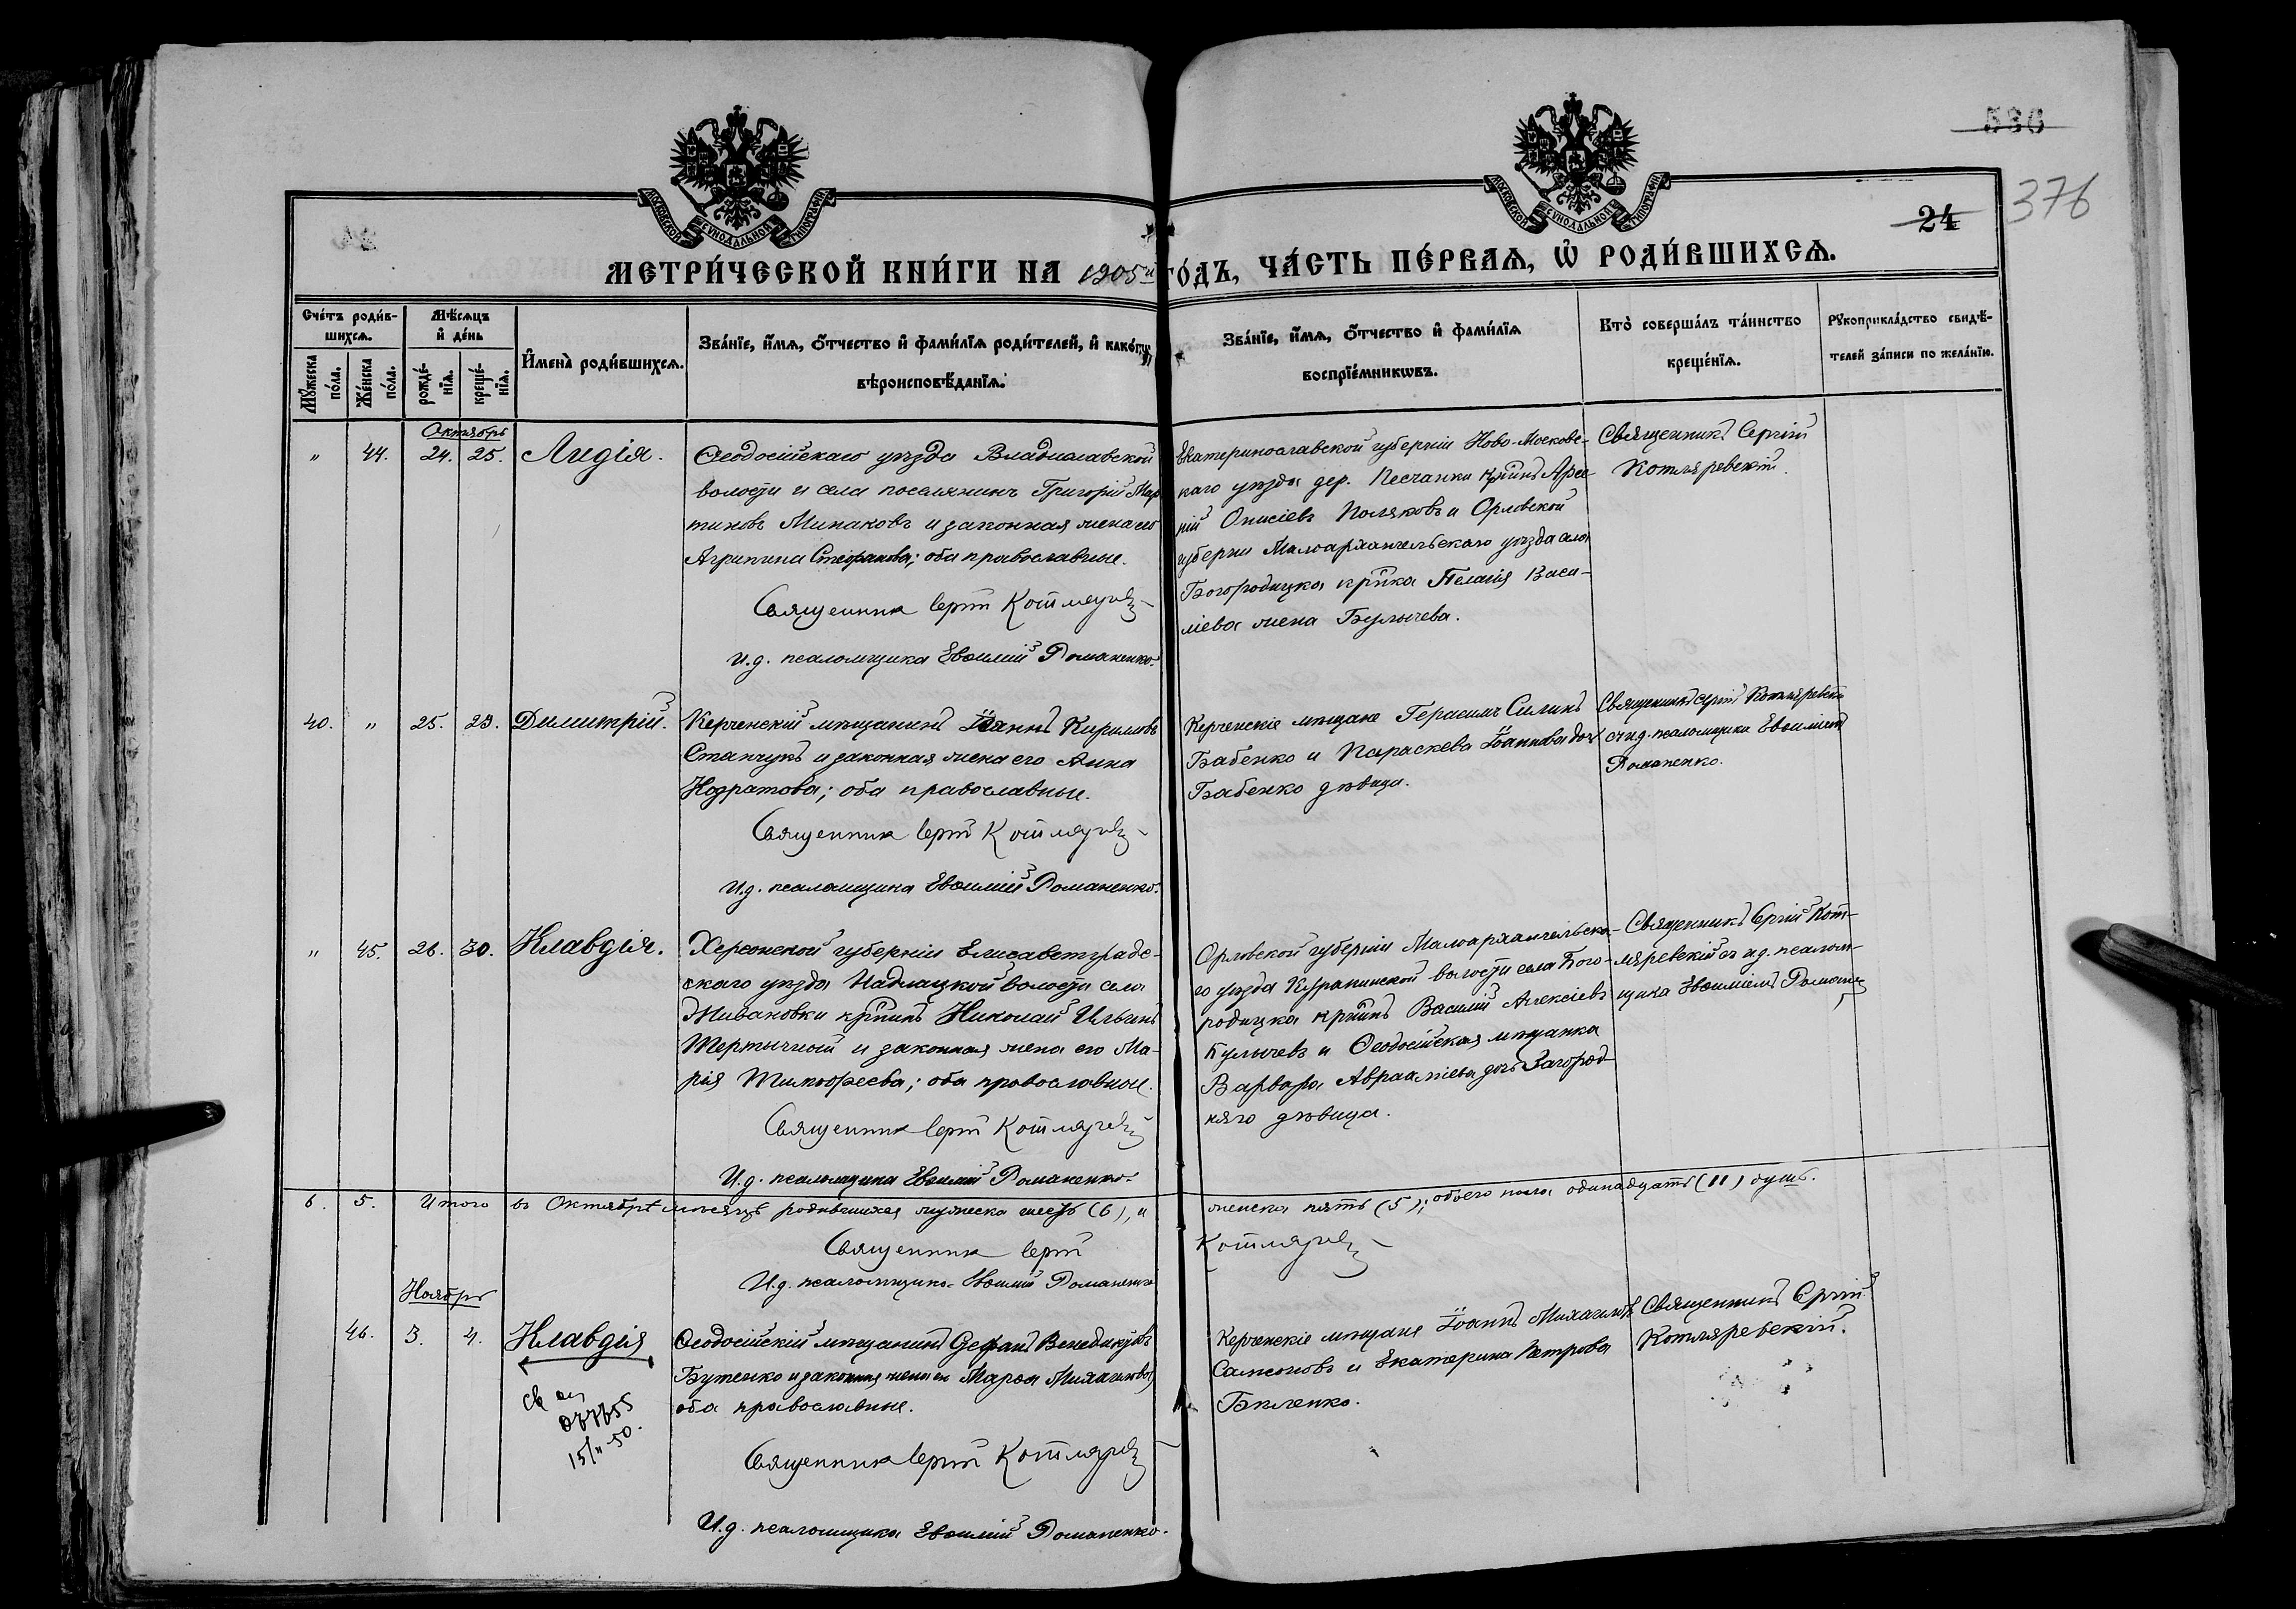 536
376
24
МОСКОВСКОЙ СѴНОДАЛЬНОЙ ТИПОГРАФІИ
МОСКОВСКОЙ СѴНОДАЛЬНОЙ ТИПОГРАФІИ
МЕТРИ́ЧЕСКОЙ КНИ́ГИ НА 1905й ГО́ДЪ, ЧА́СТЬ ПЕ́РВАѦ, Ѡ҆ РОДИ́ВШИХСѦ.
Сче́тъ роди́в-
шихсѧ.
Мꙋ́жеска по́ла.
Же́нска по́ла.
Мѣ́сѧцъ
и҆ де́нь
рожде́-
нїѧ.
креще́-
нїѧ.
И҆мена̀ роди́вшихсѧ.
Зва́нїе, и҆́мѧ, ѻ҆́тчество и҆ фами́лїѧ роди́телей, и҆ како́гѡ
вѣроисповѣ́данїѧ.
Зва́нїе, и҆́мѧ, ѻ҆́тчество и҆ фами́лїѧ
воспрїе́мникѡвъ.
Кто̀ соверша́лъ та́инство
креще́нїѧ.
Рꙋкоприкла́дство свидѣ́-
телей за́писи по жела́нїю.
Октябрь
" 44. 24. 25. Лидія.
Ѳеодосійскаго уѣзда Владиславской
волости и села поселянинъ Григорій Мар
тиновъ Минаковъ и законная жена его
Агрипина Стефанова; оба православные.
Священникъ Сергій Котляревскій
И.д. псаломщика Евѳимій Романенко.
Екатеринославской губерніи Ново-Московс-
каго уѣзда дер. Песчанки кр̃нинъ Арсе-
ній Онисіевъ Поляковъ и Орловской
губерніи Малоархангельскаго уѣзда села
Богородицка кр̃нка Пелагія Васи-
ліева жена Булычева.
Священникъ Сергій
Котляревскій.
40. " 25. 29. Димитрій.
Керченскій мѣщанинъ Іоаннъ Кириловъ
Станчукъ и законная жена его Анна
Кодратова; оба православные.
Священникъ Сергій Котляревскій
И.д. псаломщика Евѳимій Романенко.
Керченскіе мѣщане Герасимъ Силинъ
Бабенко и Параскева Іоаннова дочь
Бабенко дѣвица.
Священникъ Сергій Котляревскій
съ и.д. псаломщика Евѳиміемъ
Романенко.
" 45. 26. 30. Клавдія.
Херсонской губерніи Елисаветградс-
скаго уѣзда Надлацкой волости села
Живановки кр̃нинъ Николай Ильинъ
Тертычный и законная жена его Ма-
рія Тимоѳеева; оба православные.
Священникъ Сергій Котляревскій
И.д. псаломщика Евѳимій Романенко.
Орловской губерніи Малоархангельска-
го уѣзда Куракинской волости села Бого-
родицка кр̃нинъ Василій Алексіевъ
Булычевъ и Ѳеодосійская мѣщанка
Варвара Авраамiева дочь Загород-
няго дѣвица.
Священникъ Сергій Кот-
ляревскій съ и.д. псалом-
щика Евѳиміемъ Романенко
6. 5. Итого въ Октябрѣ мѣсяцѣ родившихся мужеска шесть (6), и женска пять (5); обоего пола одинадцать (11) душъ.
Священникъ Сергій Котляревскій
И.д. псаломщика Евѳимій Романенко
Ноябрь
46. 3. 4. Клавдія
077655
15/II-50.
Ѳеодосійскій мѣщанинъ Стефанъ Венедиктовъ
Бутенко и законная жена его Марѳа Михаилова
оба православные.
Священникъ Сергій Котляревскій
И.д. псаломщика Евѳимій Романенко.
Керченскіе мѣщане Іоаннъ Михаиловъ
Самсоновъ и Екатерина Петрова
Биленко.
Священникъ Сергій
Котляревскій.